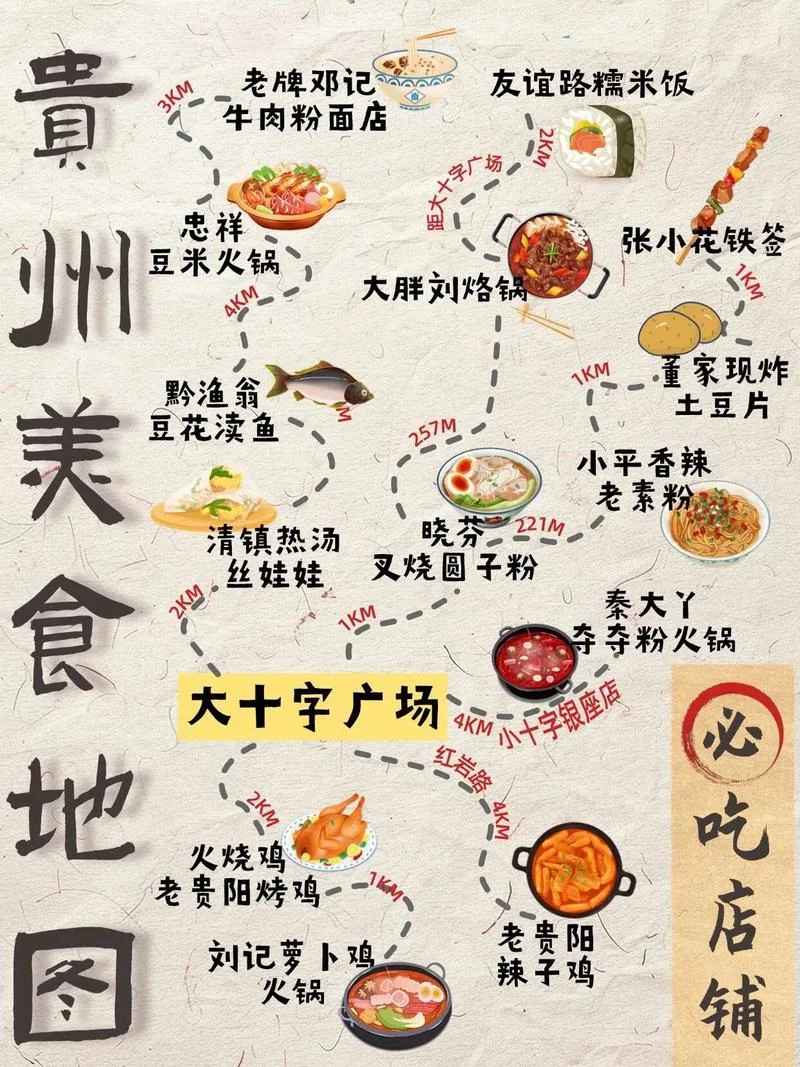 貴州美食地图
老牌邓记
牛肉粉面店
3KM
忠祥
豆米火锅
4KM
黔渔翁
豆花渎鱼
清镇热汤
丝娃娃
2KM
友谊路糯米饭
2KM
距大十字广场
大胖刘烙锅
257M
晓芬
叉烧圆子粉
221M
1KM
张小花铁签
1KM
董家现炸
土豆片
1KM
小平香辣
老素粉
秦大丫
夺夺粉火锅
4KM 小十字银座店
大十字广场
2KM
火烧鸡
老贵阳烤鸡
1KM
刘记萝卜鸡
火锅
红岩路 4KM
老贵阳
辣子鸡
必吃店铺